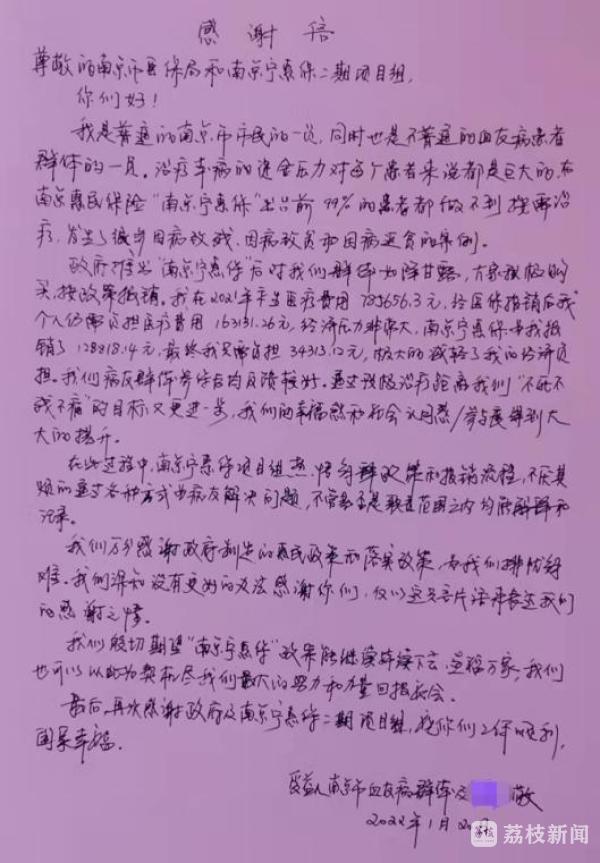 感谢信
尊敬的南京市医保局和南京宁惠保二期项目组,
你们好!
我是普通的南京市市民的一员,同时也是不普通的血友病患者
群体的一员。治疗本病的资金压力对每个患者来说都是巨大的,在
南京惠民保险“南京宁惠保”出台前99%的患者都做不到按需治
疗,发生了很多因病致残、因病致贫和因病返贫的案例。
政府推出“南京宁惠保”后对我们群体如降甘露,大家积极购
买,按政策报销。我在2021年产生医疗费用783656.3元,经医保报销后我
个人仍需负担医疗费用163131.26元,经济压力非常大,南京宁惠保为我报
销了128818.14元,最终我只需负担34313.12元,极大的减轻了我的经济负
担。我们病友群体参保后均反馈较好。通过积极治疗距离我们“不死不
残不痛”的目标又更进一步,我们的幸福感和社会认同感/参与度得到大
大的提升。
在此过程中,南京宁惠保项目组热情讲解政策和报销流程,不厌其
烦的通过各种方式为病友解决问题,不管是否是职责范围之内均耐心解释和
记录。
我们万分感谢政府制定的惠民政策和落实政策,为我们排忧解
难。我们深知没有更好的办法感谢你们,仅以这只言片语来表达我们
的感谢之情。
我们殷切期望“南京宁惠保”政策能继续持续下去,造福万家,我们
也可以以此为契机尽我们最大的努力和力量回报社会。
最后,再次感谢政府及南京宁惠保二期项目组,祝你们工作顺利,
阖家幸福。
受益人南京市血友病群体及 敬
2022年1月20
荔枝新闻